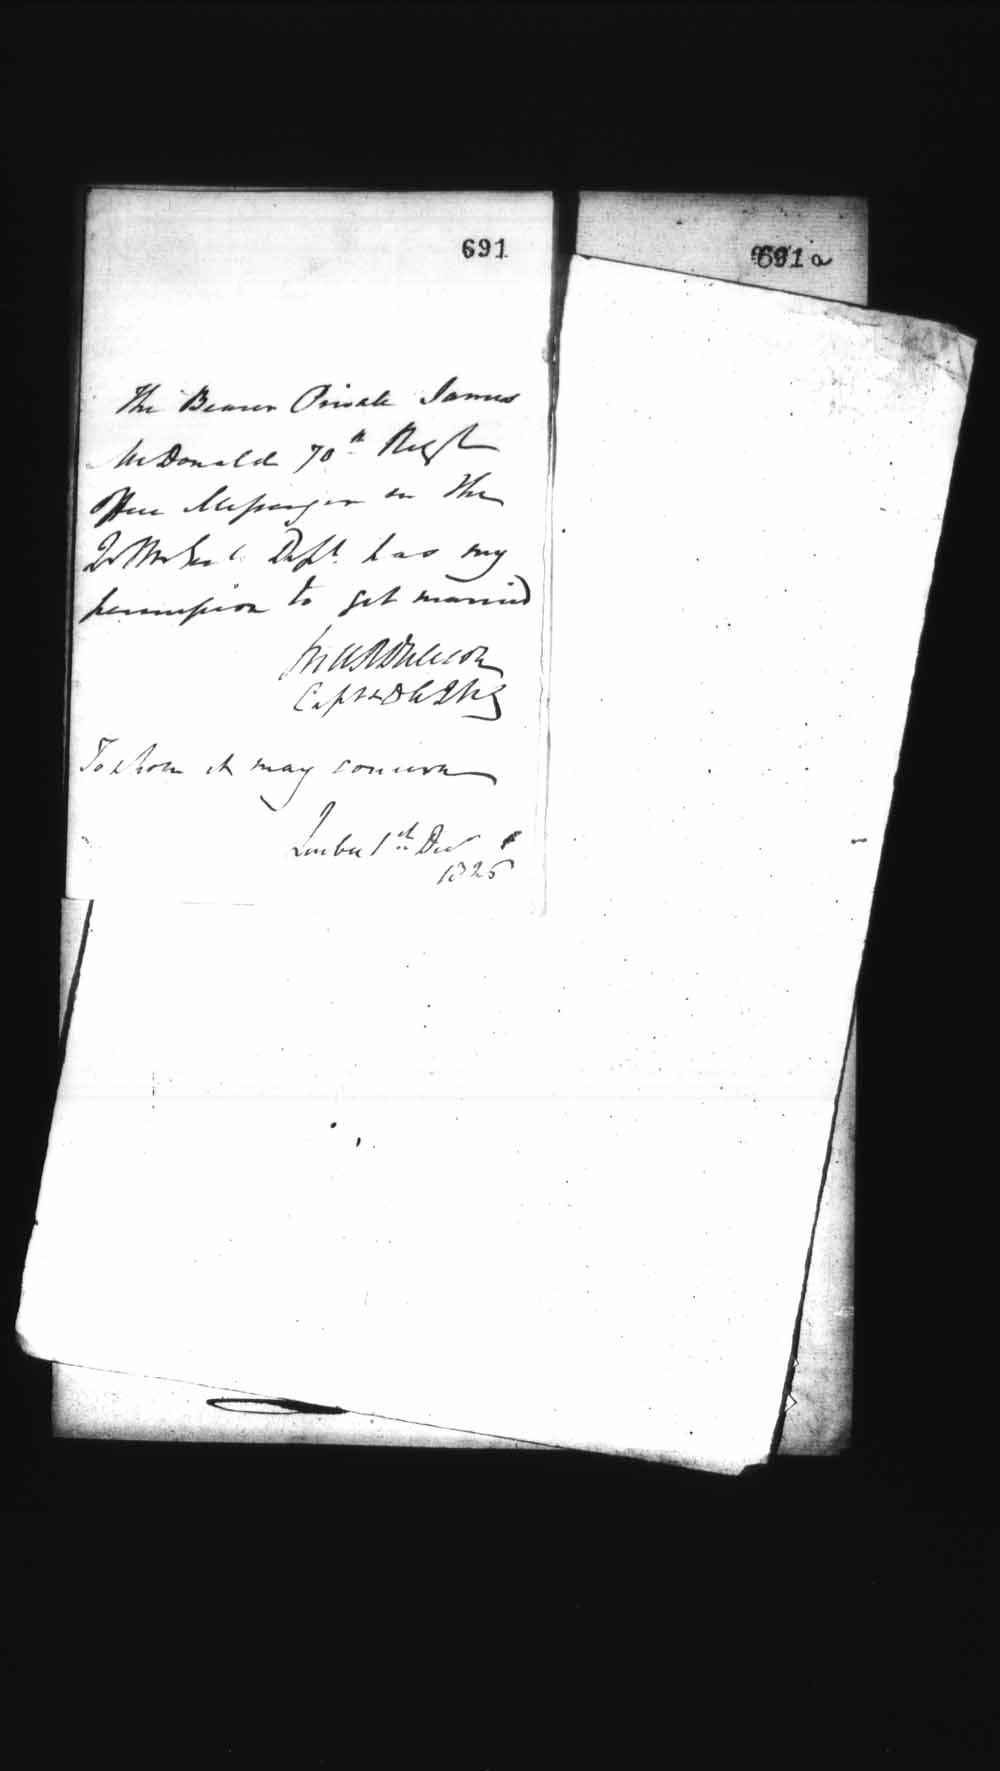 691
691a
The Bearer Private James
McDonald 70th Regt
Office Messenger in the
Qr Mr Genl Dept. has my
permission to get married
Capt &
To whom it may concern
Quebec 1st Decr
1826